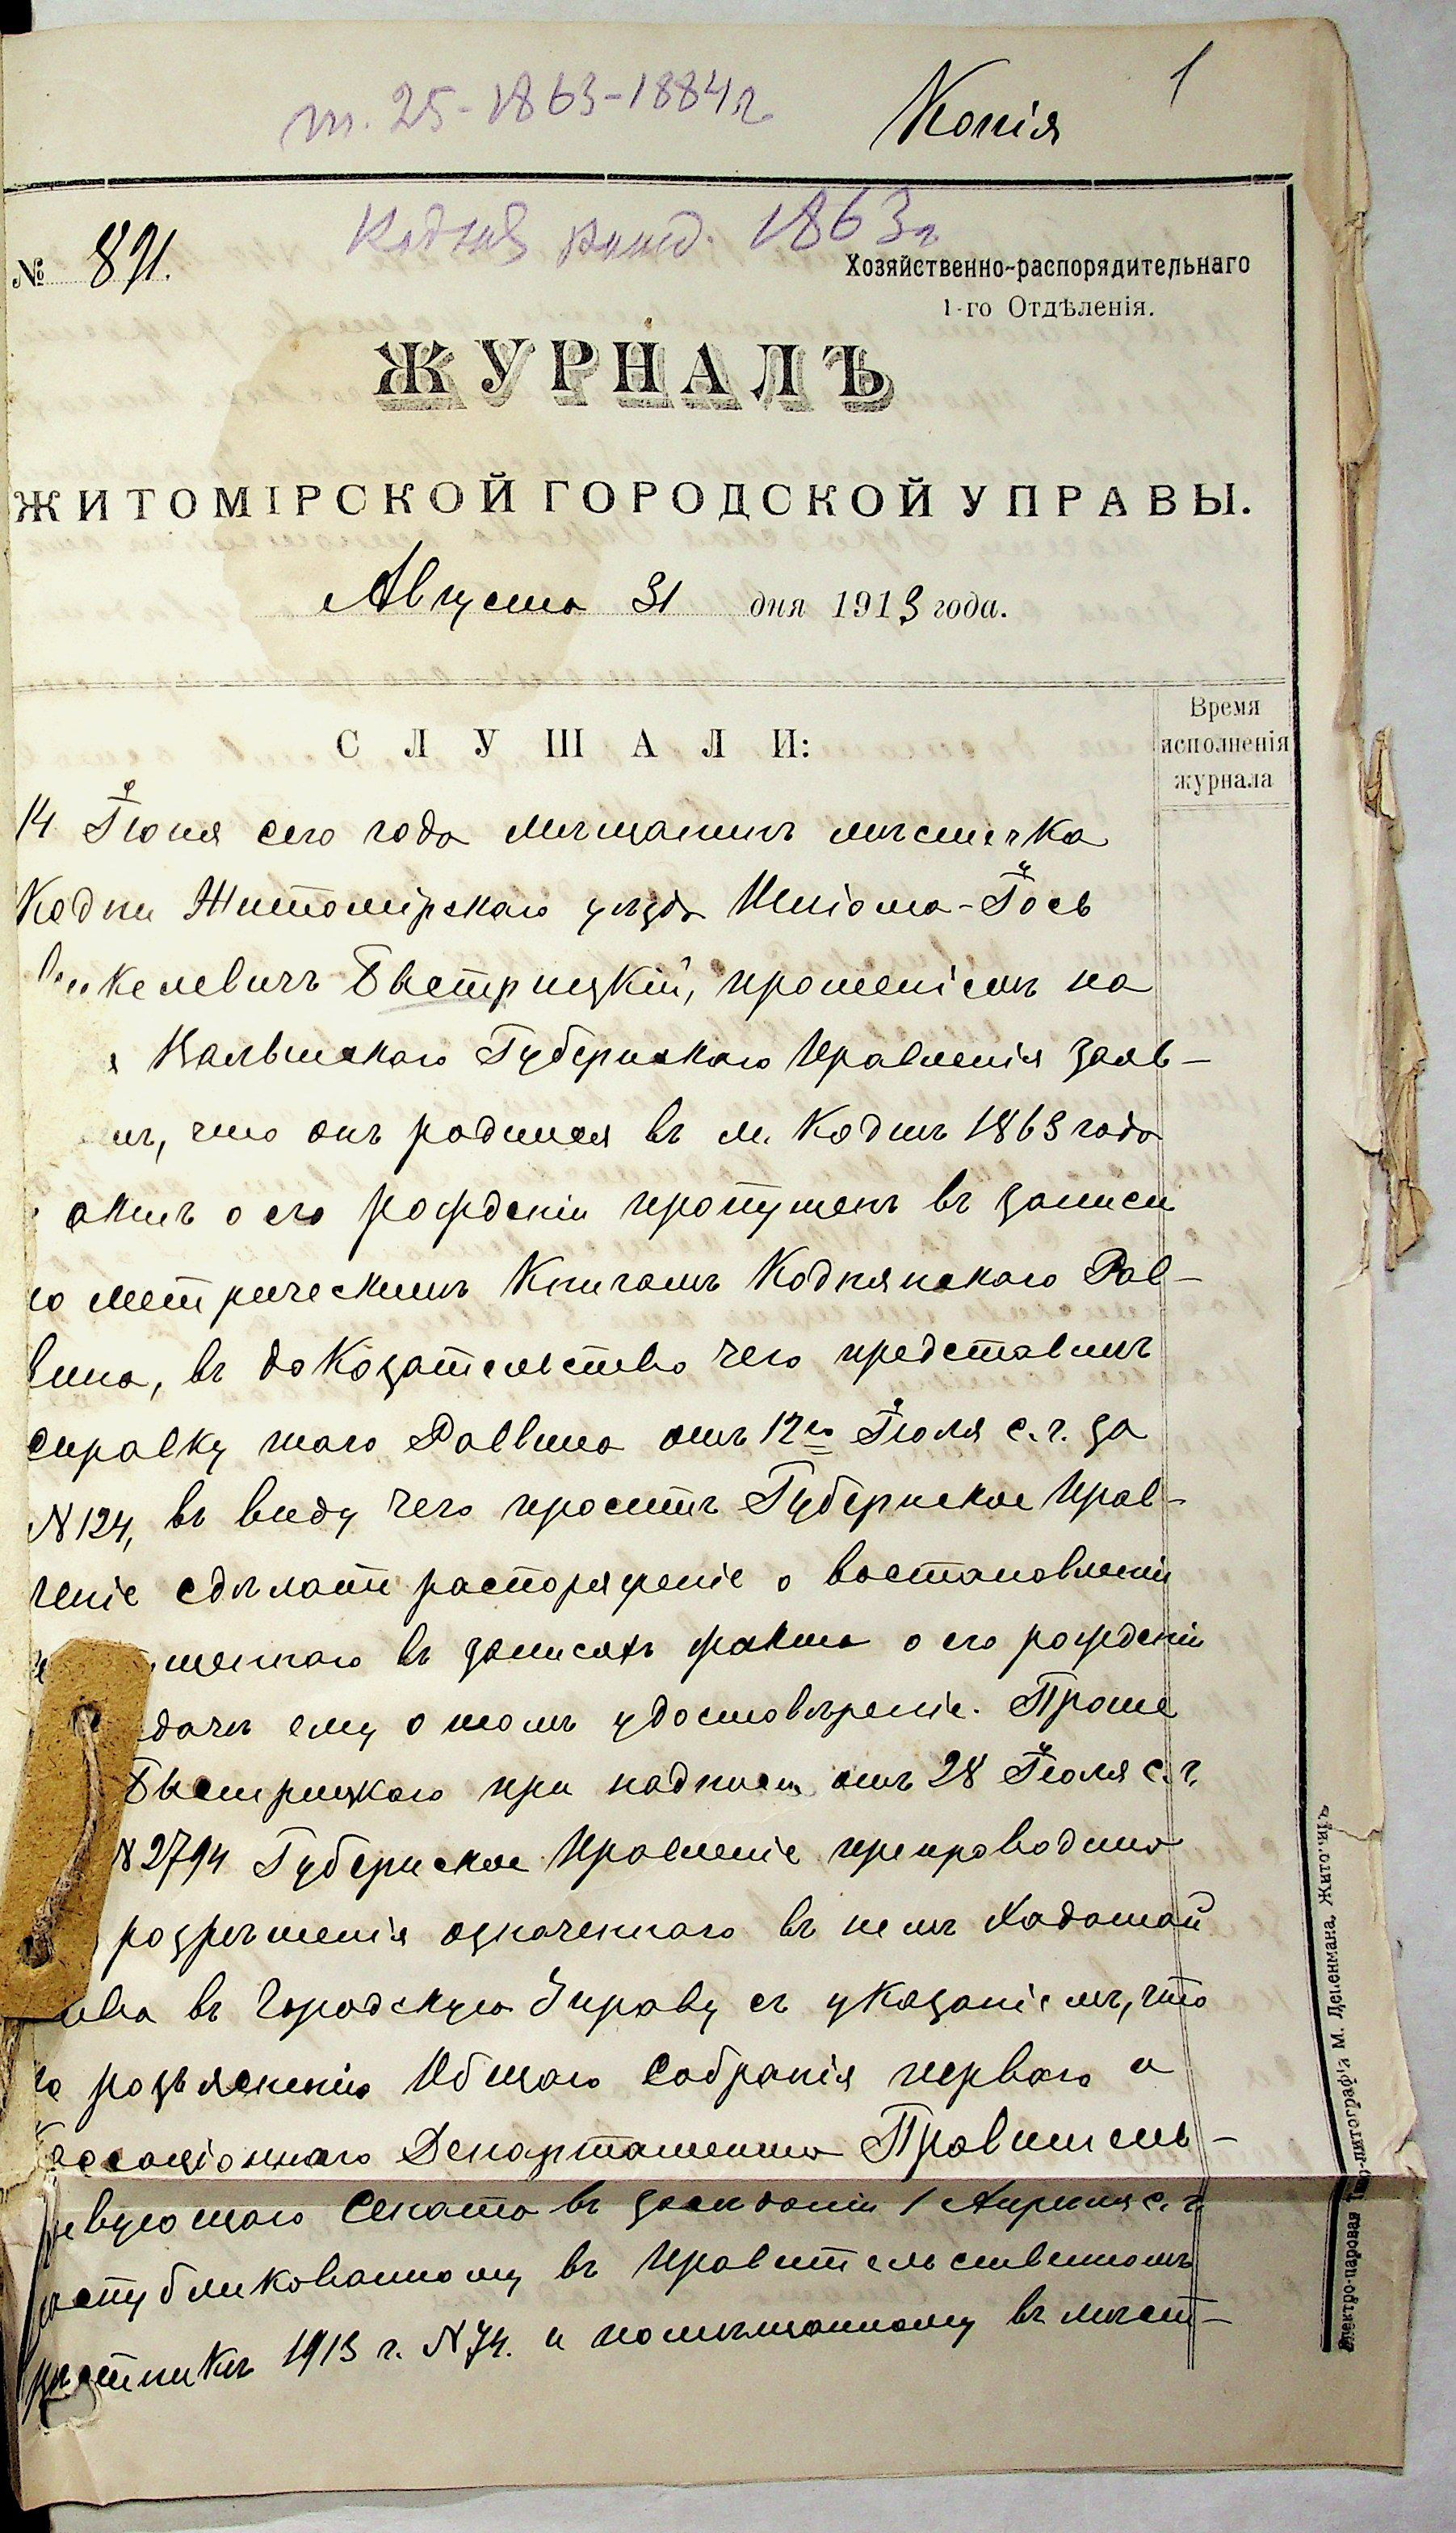 т. 25-1863-1884 г.
Копія
1
Кодня рожд. 1863 г
№ 891.
Хозяйственно-распорядительнаго
1-го Отдѣленія.
ЖУРНАЛЪ
ЖИТОМІРСКОЙ ГОРОДСКОЙ УПРАВЫ.
Августа 31 дня 1913 года.
СЛУШАЛИ:
Время
исполненія
журнала
14 Іюня сего года мѣщанинъ мѣстечка
Кодни Житомірскаго уѣзда
келевичъ Быстрицкій, прошеніемъ на
Волынскаго Губернскаго Правленія заяв-
лъ, что онъ родился въ м. Коднѣ 1863 года
актъ о его рожденіи пропущенъ въ записи
по метрическимъ книгамъ Коднянскаго Рав-
вина, въ доказательство чего представилъ
справку того Раввина отъ 12го Іюля с. г. за
N 124, въ виду чего проситъ Губернское Прав-
леніе сдѣлать распоряженіе о востановленіи
щеннаго въ записяхъ факта о его рожденіи
дачѣ ему о томъ удостовѣреніе. Проше
Быстрицкаго при надписи отъ 28 Іюля с. г.
N 2794 Губернское Правленіе препроводило
разрѣшенія означеннаго въ немъ ходатай
ства въ Городскую Управу съ указаніемъ, что
по разъясненію Общаго Собранія перваго и
Кассаціоннаго Департамента Правитель-
ствующаго Сената въ заседаніи 1 Апрѣля с. г.
распубликованному въ Правительственномъ
Вѣстникѣ 1913 г. N 74. и помѣщенному въ мѣст-
Электро-паровая Типо-литографія М. Дененмана, Житоміръ